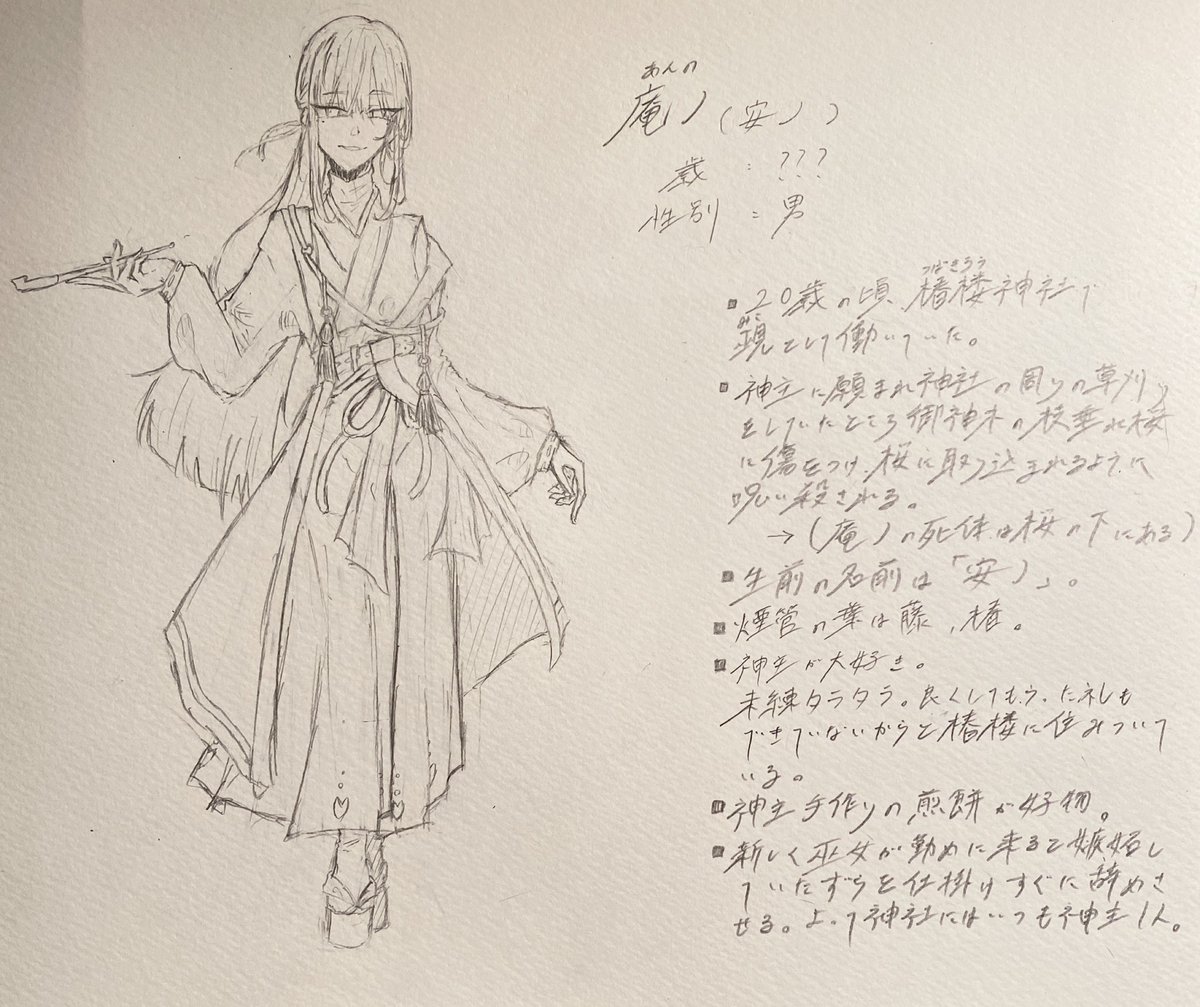 あんの
庵ノ(安ノ)
歳:???
性別:男
▪20歳の頃、椿楼神社で
つばきろう
覡として働いていた。
みこ
▪神主に願まれ神社の周りの草刈り
をしていたところ御神木の枝垂れ桜
に傷をつけ、桜に取り込まれるように
呪い殺される。
→(庵ノの死体は桜の下にある)
▪生前の名前は「安ノ」。
▪煙管の葉は藤、椿。
▪神主が大好き。
未練タラタラ。良くしてもらったお礼も
できていないからと椿楼に住みついて
いる。
▪神主手作りの煎餅が好物。
▪新しく巫女が勤めに来ると嫉妬し
ていたずらを仕掛けすぐに辞めさ
せる。よって神社にはいつも神主1人。